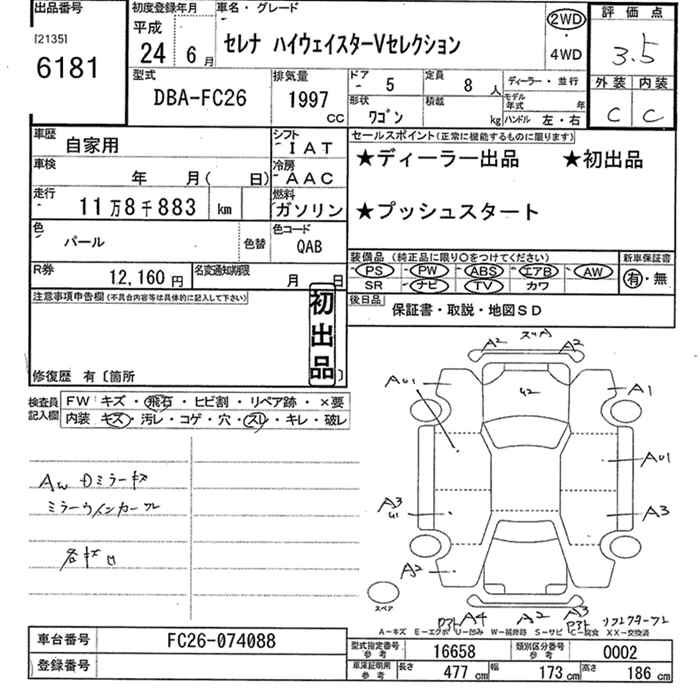 出品番号
[2135]
6181
初度登録年月
平成
24 6月
車名・グレード
セレナ ハイウェイスターVセレクション
2WD
・
4WD
評価点
3.5
外装 内装
C C
型式
DBA-FC26
排気量
1997 CC
ドア 5
定員 8 人
形状 ワゴン
積載 kg
ディーラー・並行
モデル年式 年
ハンドル 左・右
車歴 自家用
シフト IAT
車検 年 月( 日)
冷房 AAC
走行 11万8千883 km
燃料 ガソリン
色 パール
色替
色コード QAB
R券 12,160円
名変通知期限 月 日
セールスポイント(正常に機能するものに限ります)
★ディーラー出品 ★初出品
★プッシュスタート
装備品 (純正品に限り○をつけてください)
PS PW ABS エアB AW
SR ナビ TV カワ
新車保証書
有・無
後日品
保証書・取説・地図SD
注意事項申告欄(不具合内容等は具体的に記入して下さい)
初出品
修復歴 有〔箇所 〕
検査員記入欄
FW キズ・飛石・ヒビ割・リペア跡・×要
内装 キズ・汚レ・コゲ・穴・スレ・キレ・破レ
AW Dミラーキズ
ミラーウインカー
各キズ凹
A2 A2
AU1 42 A1
AU1
A3 A3
U1
A2
スペア
A4 A2 A3
A−キズ E−エクボ U−凹み W−補修跡 S−サビ C−腐食 XX−交換済
車台番号 FC26-074088
登録番号
型式指定番号 参考 16658
類別区分番号 参考 0002
車庫証明用 参考 長さ 477 cm 幅 173 cm 高さ 186 cm